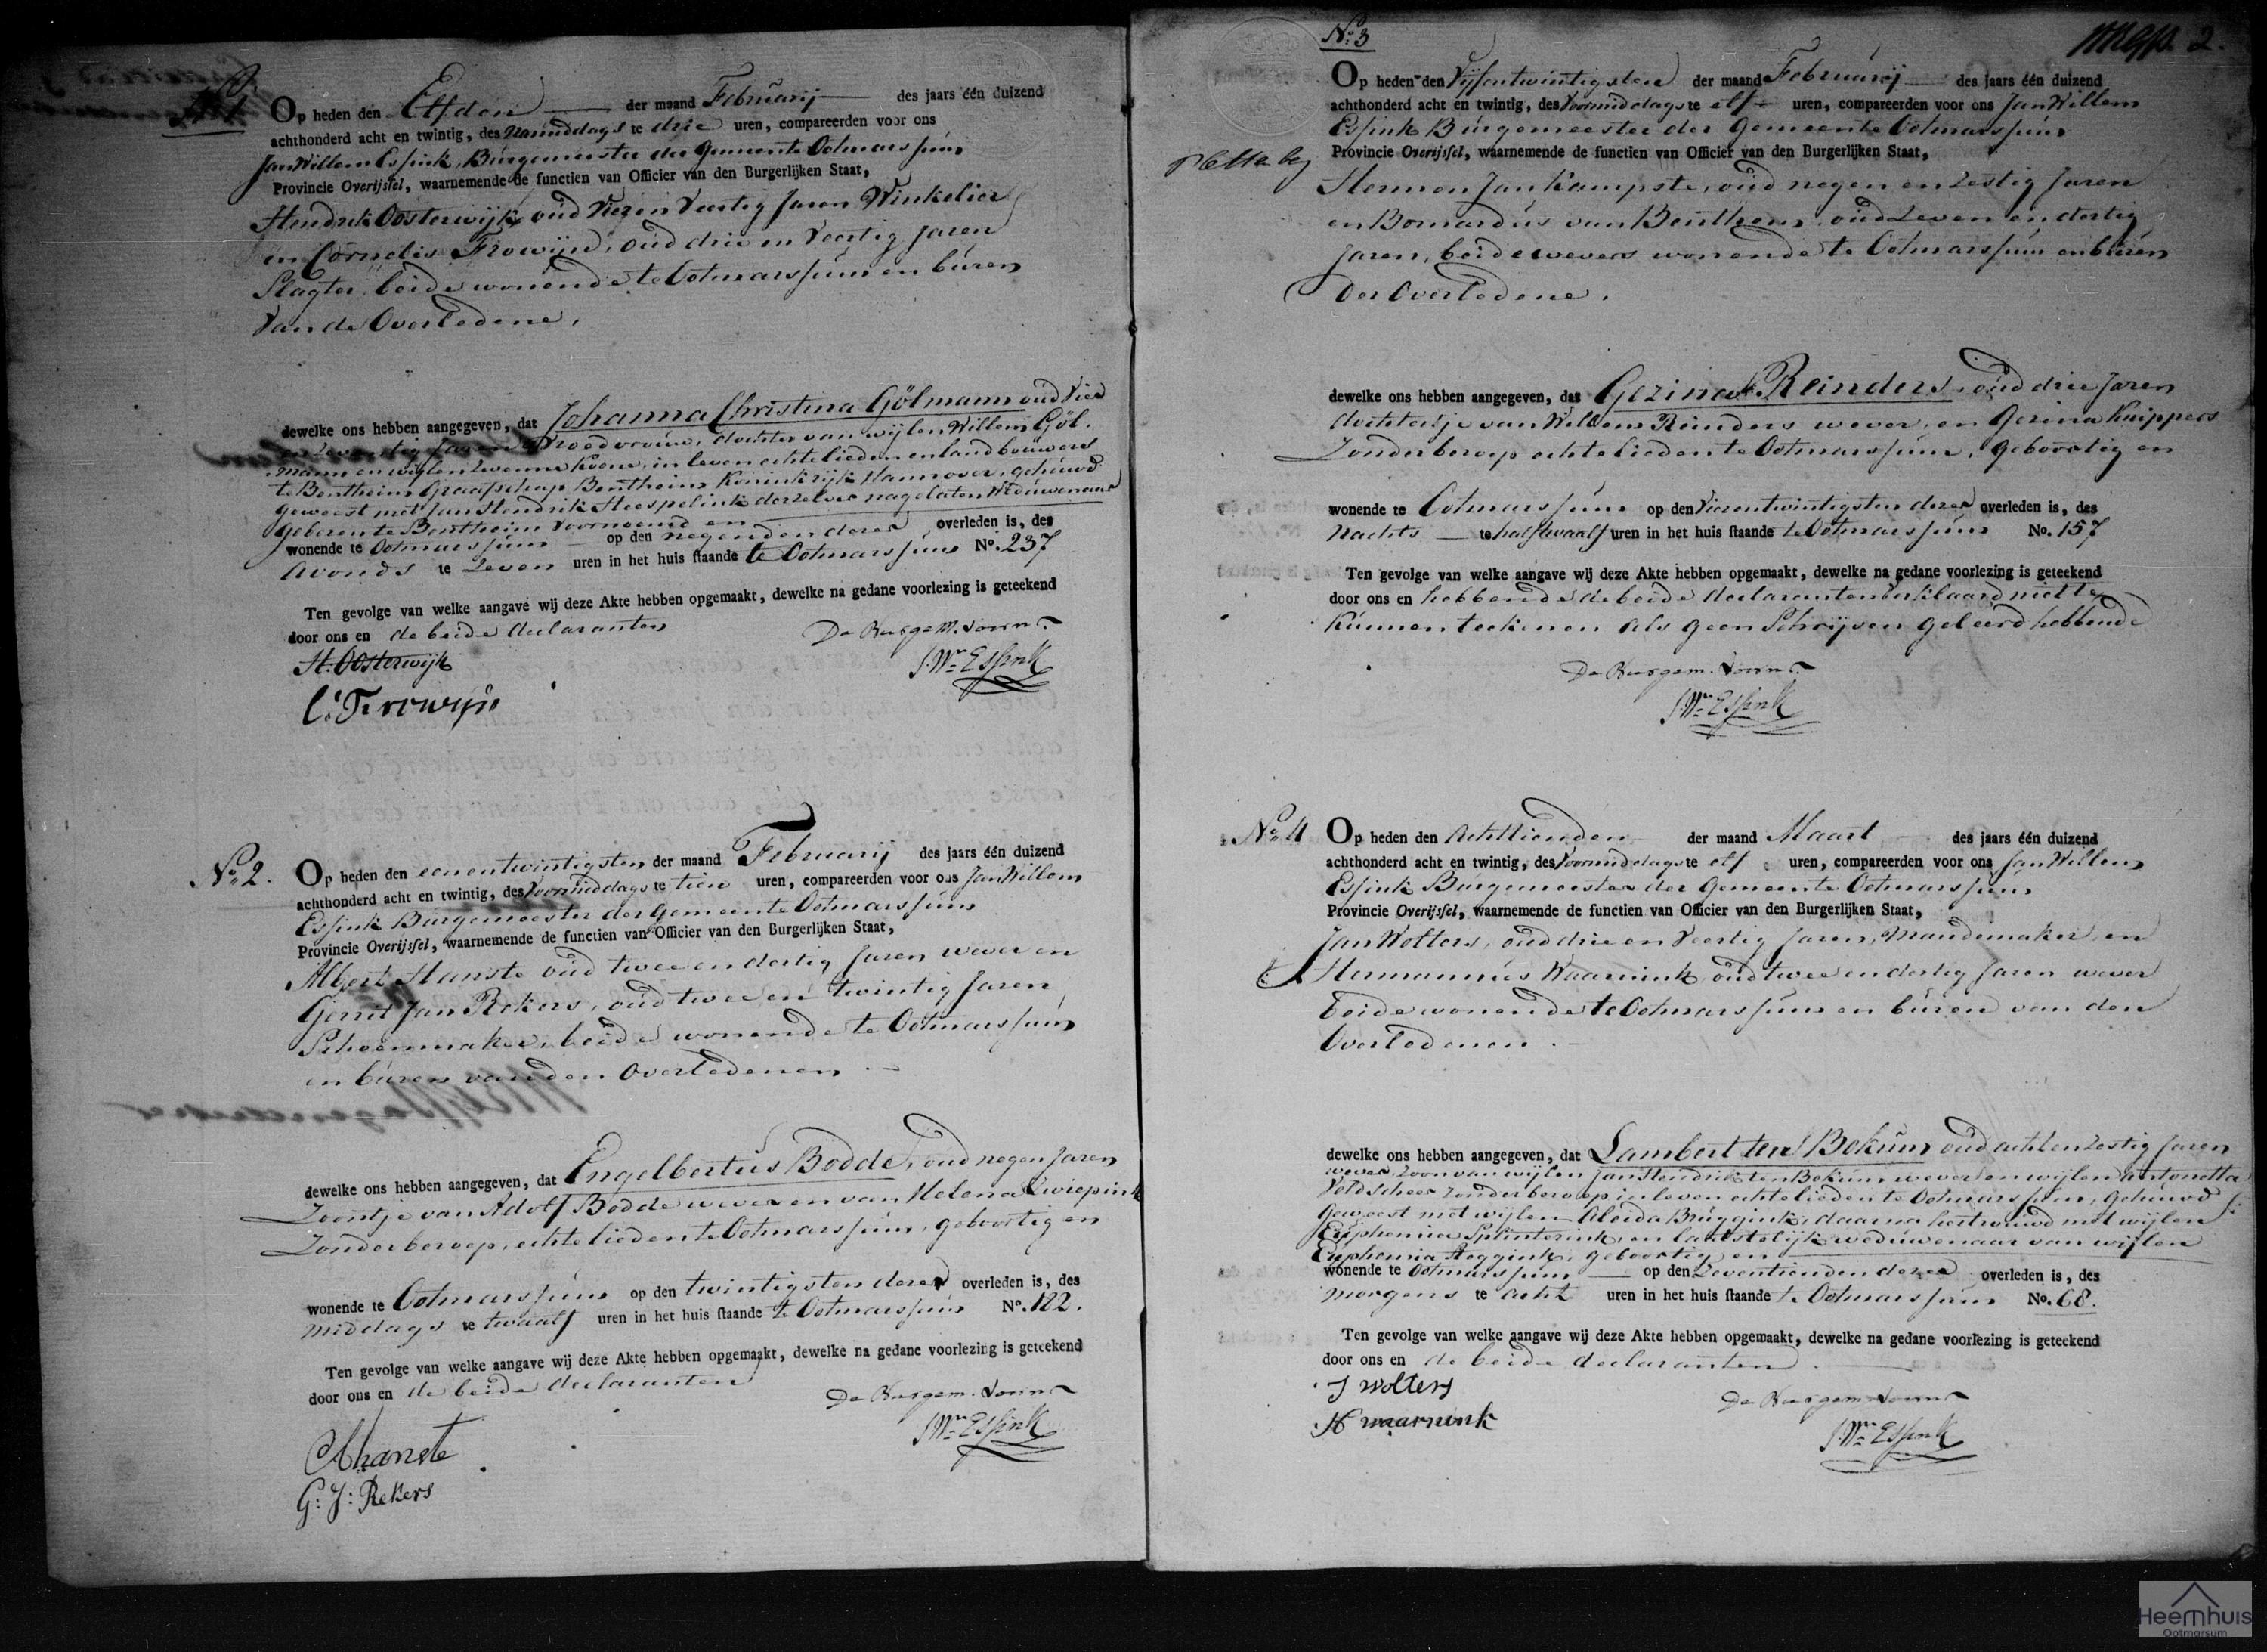 N.º 1
Op heden den Elfden der maand Februarij des jaars één duizend
achthonderd acht en twintig, des Namiddags te drie uren, compareerden voor ons
Jan Willem Essink, Burgemeester der Gemeente Ootmarssum
Provincie Overijssel, waarnemende de functien van Officier van den Burgerlijken Staat,
Hendrik Oosterwijk, oud Vier en Veertig Jaren Winkelier
en Cornelis Frowijn, oud drie en Veertig Jaren
Slagter, beide wonende te Ootmarssum en buren
Van de Overledene,
dewelke ons hebben aangegeven, dat Johanna Christina Gölmann oud Vier
en Zeventig Jaren Vroedvrouw, dochter van wijlen Willem Göl-
mann en wijlen Zwenne Koene, in leven echtelieden en landbouwers
te Bentheim Graafschap Bentheim Koninkrijk Hannover, gehuwd
geweest met Jan Hendrik Heespelink derzelver nagelaten Weduwenaar
geboren te Bentheim Voornoemd en
wonende te Ootmarssum op den negenden dezer overleden is, des
Avonds te Zeven uren in het huis staande te Ootmarssum No. 237
Ten gevolge van welke aangave wij deze Akte hebben opgemaakt, dewelke na gedane voorlezing is geteekend
door ons en de beide declaranten
De Burgem. Voorn.
H. Oosterwijk
J. Wm. Essink
C. Frowijn
No. 2.
Op heden den eenentwintigsten der maand Februarij des jaars één duizend
achthonderd acht en twintig, des Voormiddags te tien uren, compareerden voor ons Jan Willem
Essink Burgemeester der Gemeente Ootmarssum
Provincie Overijssel, waarnemende de functien van Officier van den Burgerlijken Staat,
Albert Hanste oud twee en dertig Jaren, wever en
Gerrit Jan Rekers, oud twee en twintig Jaren
Schoenmaker, beide wonende te Ootmarssum
en buren van den Overledenen
dewelke ons hebben aangegeven, dat Engelbertus Bodde, oud negen Jaren
Zoontje van Adolf Bodde wever en van Helena Zwiepink
Zonder beroep, echtelieden te Ootmarssum, geboortig en
wonende te Ootmarssum op den twintigsten dezer overleden is, des
Middags te twaalf uren in het huis staande te Ootmarssum No. 122.
Ten gevolge van welke aangave wij deze Akte hebben opgemaakt, dewelke na gedane voorlezing is geteekend
door ons en de beide declaranten
De Burgem. Voorn.
J. Wm. Essink
A hanste
G: J: Rekers
2.
No. 3
Op heden den Vijfentwintigsten der maand Februarij des jaars één duizend
achthonderd acht en twintig, des Voormiddags te elf uren, compareerden voor ons Jan Willem
Essink Burgemeester der Gemeente Ootmarssum
Provincie Overijssel, waarnemende de functien van Officier van den Burgerlijken Staat,
Hermen Jan Kampste, oud negen en zestig Jaren
en Bernardus van Benthem, oud Zeven en dertig
Jaren, beide wevers wonende te Ootmarssum en buren
Der Overledene.
dewelke ons hebben aangegeven, dat Gezina Reinders, oud drie Jaren
dochtertje van Willem Reinders wever, en Gezina Kuippers
Zonder beroep echtelieden te Ootmarssum, geboortig en
wonende te Ootmarssum op den Vierentwintigsten dezer overleden is, des
Nachts te half twaalf uren in het huis staande te Ootmarssum No. 157
Ten gevolge van welke aangave wij deze Akte hebben opgemaakt, dewelke na gedane voorlezing is geteekend
door ons en hebbende de beide declaranten verklaard niet te
Kunnen teekenen als geen Schrijven geleerd hebbende
De Burgem. Voorn.
J. Wm. Essink
No. 4
Op heden den Achttienden der maand Maart des jaars één duizend
achthonderd acht en twintig, des Voormiddags te elf uren, compareerden voor ons Jan Willem
Essink Burgemeester der Gemeente Ootmarssum
Provincie Overijssel, waarnemende de functien van Officier van den Burgerlijken Staat,
Jan Wolters, oud drie en Veertig Jaren, Mandemaker, en
Hermannus Waarnink, oud twee en dertig Jaren wever
beide wonende te Ootmarssum en buren van den
Overledenen.
dewelke ons hebben aangegeven, dat Lambert ten Bokum oud acht en Zestig Jaren
wever, Zoon van wijlen Jan Hendrik ten Bokum wever en wijlen Antonetta
Veldscheer Zonder beroep in leven echtelieden te Ootmarssum, gehuwd
geweest met wijlen Aleida Bruggink, daarna hertrouwd met wijlen
Euphemia Splinterink, en laatstelijk weduwenaar van wijlen
Euphemia Reggink, geboortig en
wonende te Ootmarssum op den Zeventienden dezer overleden is, des
Morgens te acht uren in het huis staande te Ootmarssum No. 68.
Ten gevolge van welke aangave wij deze Akte hebben opgemaakt, dewelke na gedane voorlezing is geteekend
door ons en de beide declaranten.
J wolters
De Burgem. Voorn.
H waarnink
J. Wm. Essink
Heemhuis
Ootmarsum